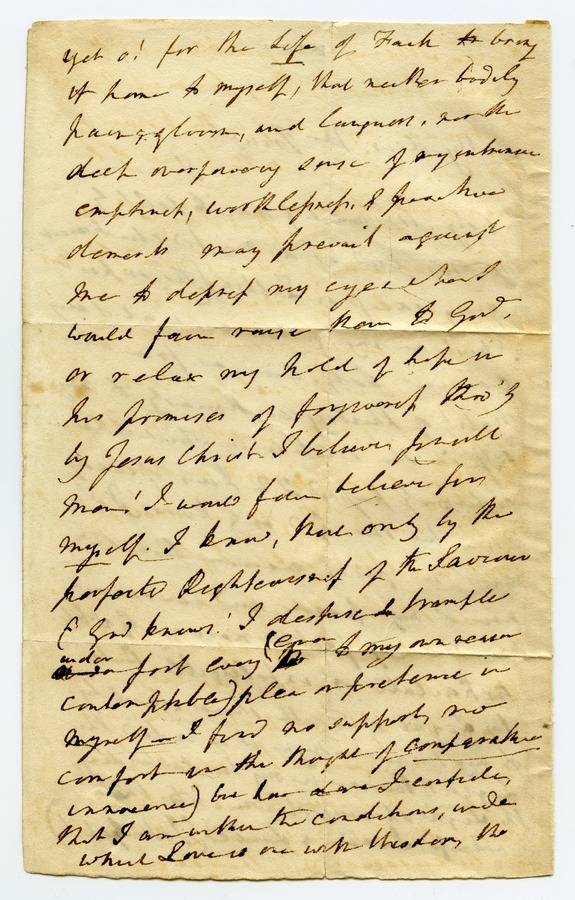 yet o! for the Life of Faith to bring
it home to myself, that neither bodily
pain, gloom, and languor, nor the
deep overpowering sense of my
emptiness, worthlessness, &
demerits may prevail against
me to depress my eyes when I
would fain raise them to God,
or relax my hold of hope in
his promises of forgiveness thro'
by Jesus Christ. I believe for all
Men! I would fain believe for
myself. I know, that only by the
perfect Righteousness of the Saviour
(God knows! I despise & trample
under foot every (even to my own reason
contemptible) plea or pretence in
myself — I find no support, no
comfort in the thought of comparative
innocence) but how dare I confide,
that I am within the conditions, under
which Love is one with Wisdom, the